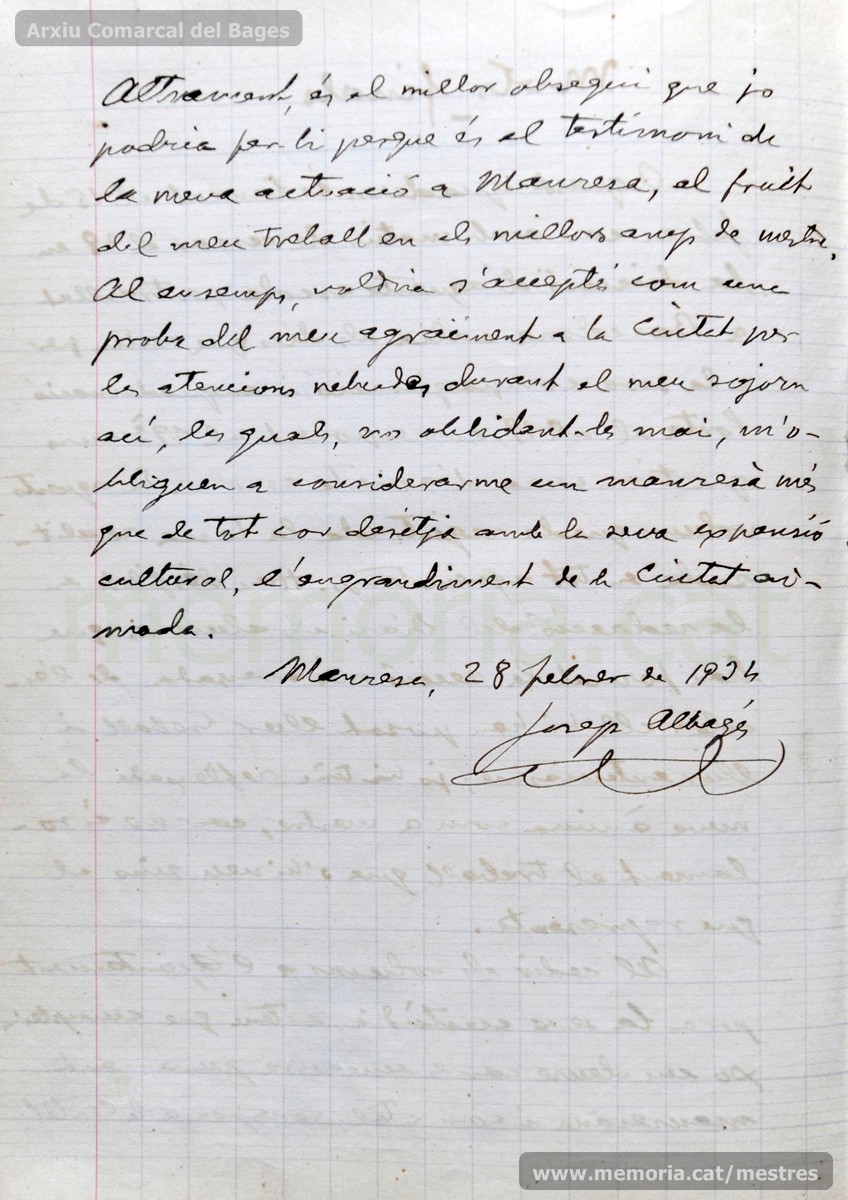 Arxiu Comarcal del Bages
Altrament, és el millor obsequi que jo
podria fer-li perque és el testimoni de
la meva actuació a Manresa, el fruit
del meu treball en els millors anys de mestre.
Al ensemps, voldria s'acceptés com una
proba del meu agraïment a la Ciutat per
les atencions rebudes durant el meu sojorn
ací, les quals, no oblidant-les mai, m'o-
bliguen a considerarme un manresà més
que de tot cor desitja amb la seva expansió
cultural, l'engrandiment de la Ciutat ai-
mada.
Manresa, 28 febrer de 1934
Josep Albagés
memoria.cat
www.memoria.cat/mestres